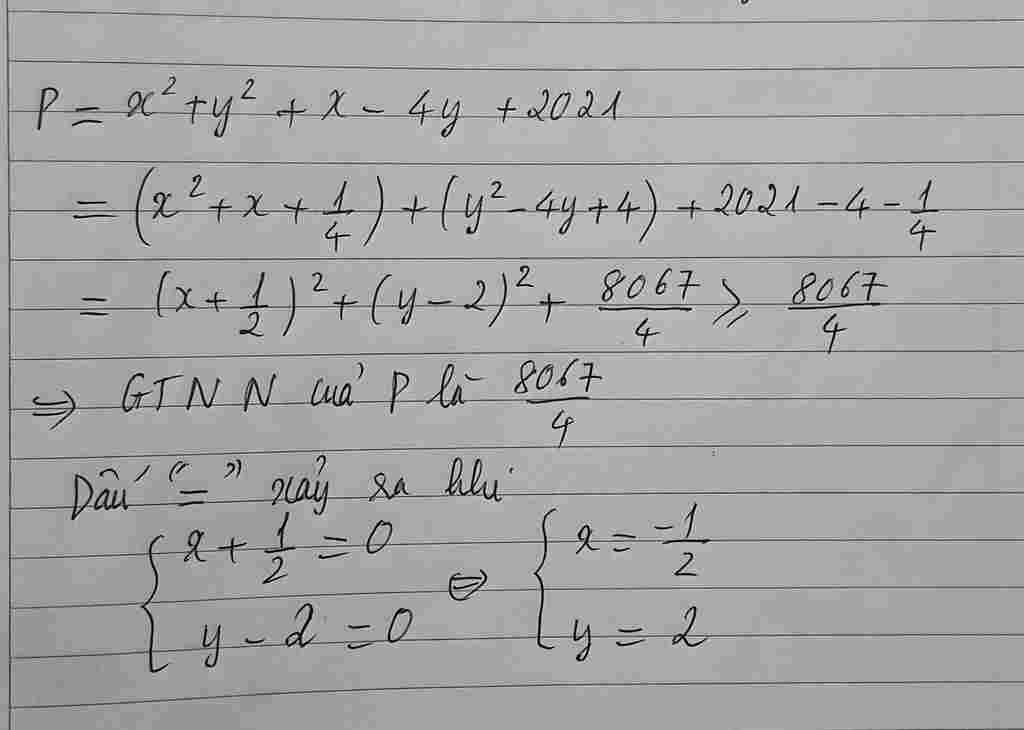 P = x² + y² + x - 4y + 2021
= (x² + x + 1/4) + (y² - 4y + 4) + 2021 - 4 - 1/4
= (x + 1/2)² + (y - 2)² + 8067/4 ⩾ 8067/4
⇒ GTNN của P là 8067/4
Dấu "=" xảy ra khi
{ x + 1/2 = 0 ⇔ { x = -1/2
{ y - 2 = 0 { y = 2